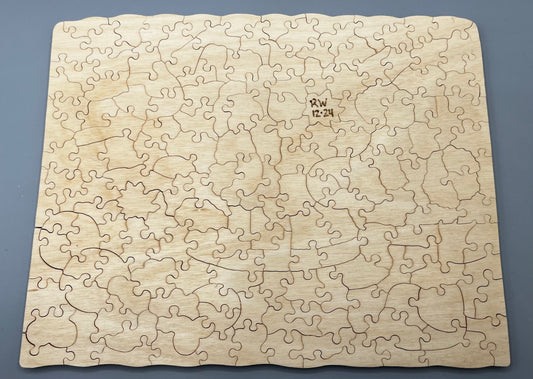 RW
12-24